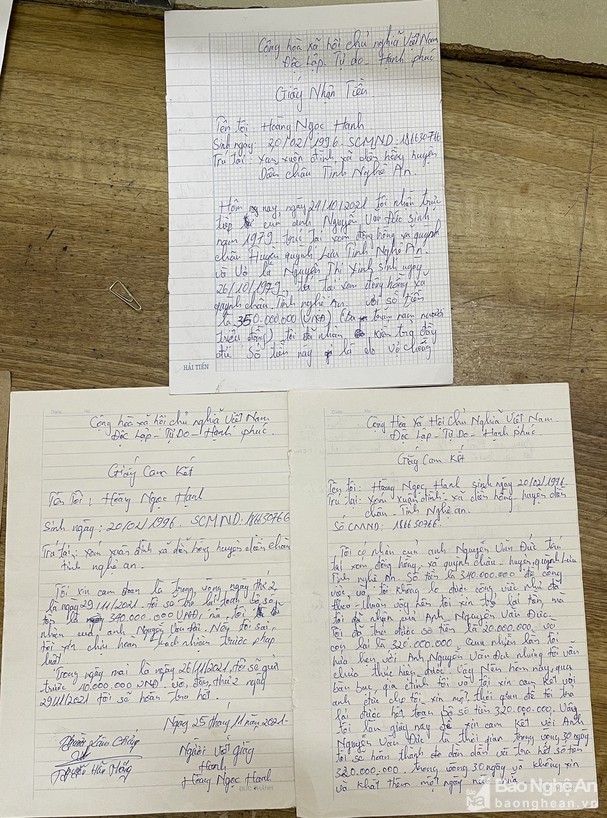 Cộng hòa xã hội chủ nghĩa Việt Nam
Độc Lập - Tự do - Hạnh phúc
Giấy Nhận Tiền
Tên tôi Hoàng Ngọc Hạnh
Sinh ngày: 20/02/1996. SCMND: 186630766
Trú tại: xuân đình, xã diễn hồng huyện
Diễn châu Tỉnh Nghệ An.
Hôm nay, ngày 24/10/2021 tôi nhận trực
tiếp của anh Nguyễn Văn Đức sinh
năm 1979. trú tại xóm đồng hồng xã quỳnh
châu Huyện quỳnh lưu Tỉnh Nghệ An.
và Vợ là Nguyễn Thị Xinh sinh ngày
26/10/1979, trú tại xóm đồng hồng xã
quỳnh châu Tỉnh nghệ An. với số tiền
là 350.000.000 (VNĐ) (Ba trăm năm mươi
triệu đồng) tôi đã nhận kiểm tra đầy
đủ. Số tiền này là do vợ chồng
HẢI TIẾN
Cộng hòa xã hội chủ nghĩa Việt Nam
Độc Lập - Tự Do - Hạnh phúc.
Giấy Cam Kết
Tên Tôi: Hoàng Ngọc Hạnh
Sinh ngày: 20/02/1996. SCMND: 186630766
Trú tại: xóm xuân đình xã diễn hồng huyện diễn châu
tỉnh nghệ an.
Tôi xin cam đoan là trong vòng ngày thứ 2
là ngày 29/11/2021. tôi sẽ trả lại toàn bộ số
tiền là 340.000.000 VNĐ, mà tôi đã
nhận của anh Nguyễn Văn Đức. Nếu tôi sai
tôi xin chịu hoàn trách nhiệm trước pháp
luật
Trong ngày mai là ngày 26/11/2021, tôi sẽ gửi
trước 10.000.000 VNĐ. và đến thứ 2 ngày
29/11/2021 tôi sẽ hoàn trả hết.
Ngày 25 tháng 11 năm 2021.
Người viết giấy
Hạnh
Hoàng Ngọc Hạnh
Cộng Hòa Xã Hội Chủ Nghĩa Việt Nam
Độc Lập - Tự Do - Hạnh phúc.
Giấy Cam Kết
Tên tôi: Hoàng Ngọc Hạnh sinh ngày 20/02/1996
Trú tại: xóm xuân đình xã diễn hồng huyện diễn
châu - Tỉnh nghệ an.
Số CMND: 186630766.
Tôi có nhận của anh Nguyễn Văn Đức trú
tại xóm đồng hồng, xã quỳnh châu - huyện quỳnh lưu
Tỉnh nghệ An. Số tiền là 340.000.000 để công
việc, và tôi không lo được công việc như đã
theo thuận vậy nên tôi xin trả lại tiền mà
tôi đã nhận của Anh Nguyễn Văn Đức.
Tôi đã trả được số tiền là 20.000.000. và
còn lại là 320.000.000 qua nhiều lần tôi
hứa hẹn với Anh Nguyễn Văn Đức nhưng tôi vẫn
chưa thực hiện được. Vậy Nên hôm nay, qua
bàn bạc, gia đình tôi và tôi xin cam kết với
anh đức cho tôi xin một thời gian để tôi trả
lại được hết toàn bộ số tiền 320.000.000. Vậy
tôi làm giấy này để xin cam kết với Anh
Nguyễn Văn Đức là thời gian trong vòng 30 ngày
tôi sẽ hoàn thành dần dần và trả hết số tiền
320.000.000 trong vòng 30 ngày và không xin
và khất thêm một ngày nào nữa.
Báo Nghệ An
baonghean.vn